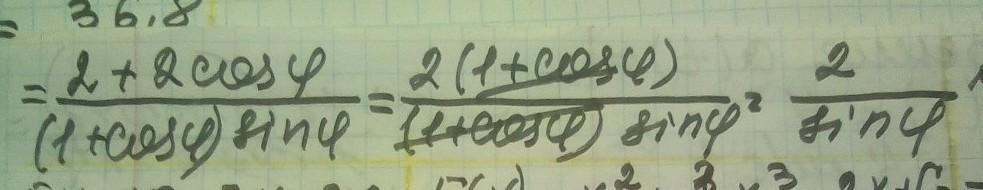 = 36,8
= (2 + 2cosφ)/((1+cosφ) sinφ) = (2(1+cosφ))/((1+cosφ) sinφ) = 2/(sinφ)